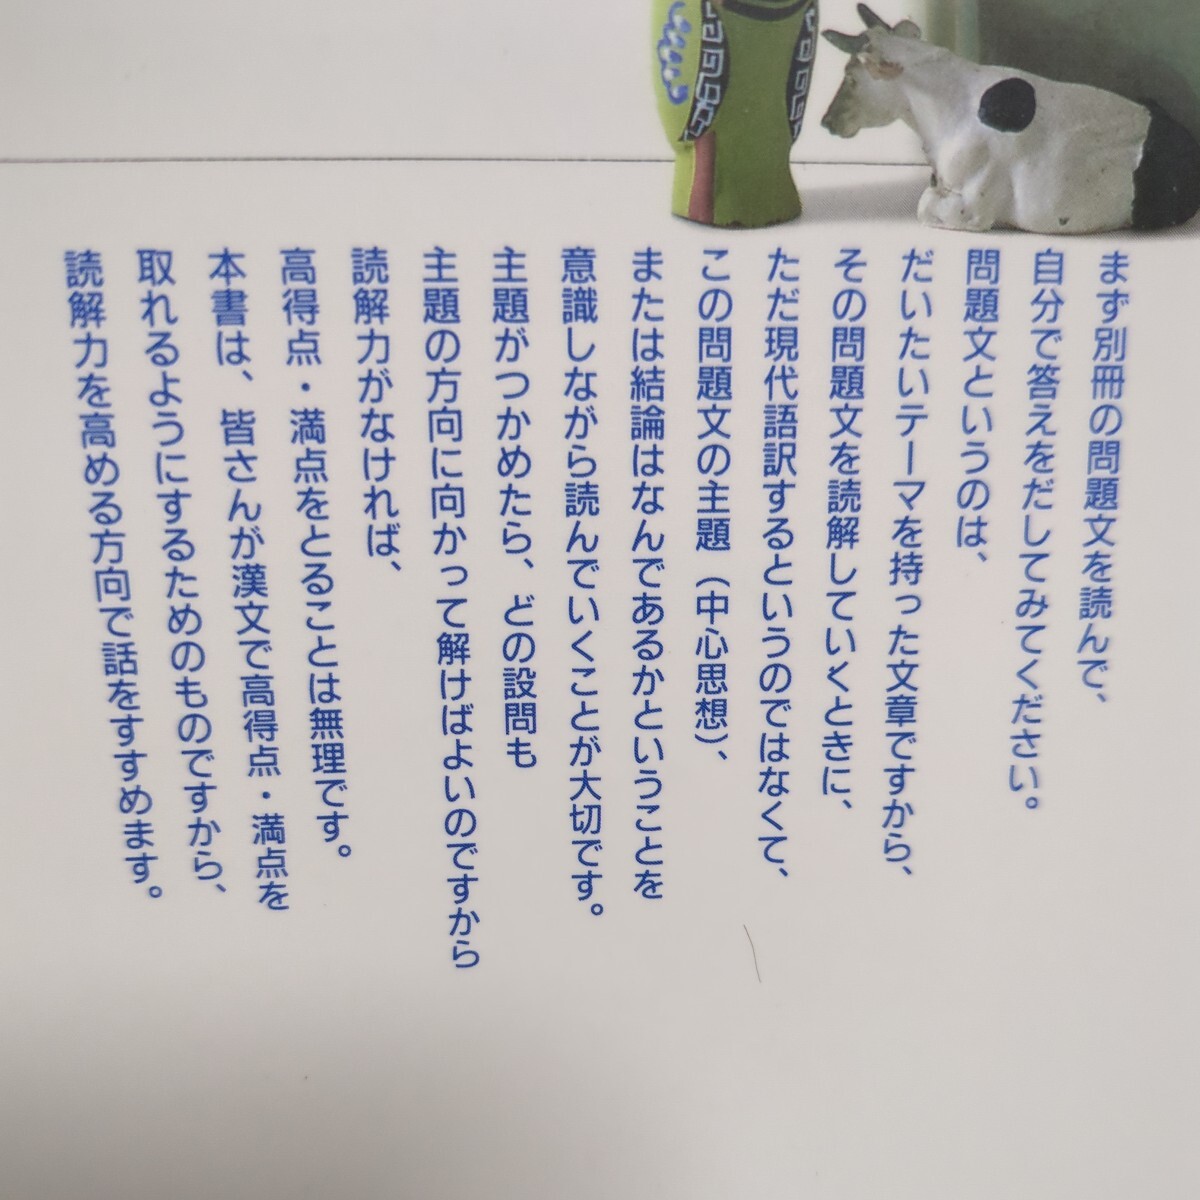 まず別冊の問題文を読んで、
自分で答えをだしてみてください。
問題文というのは、
だいたいテーマを持った文章ですから、
その問題文を読解していくときに、
ただ現代語訳するというのではなくて、
この問題文の主題（中心思想）、
または結論はなんであるかということを
意識しながら読んでいくことが大切です。
主題がつかめたら、どの設問も
主題の方向に向かって解けばよいのですから
読解力がなければ、
高得点・満点をとることは無理です。
本書は、皆さんが漢文で高得点・満点を
取れるようにするためのものですから、
読解力を高める方向で話をすすめます。